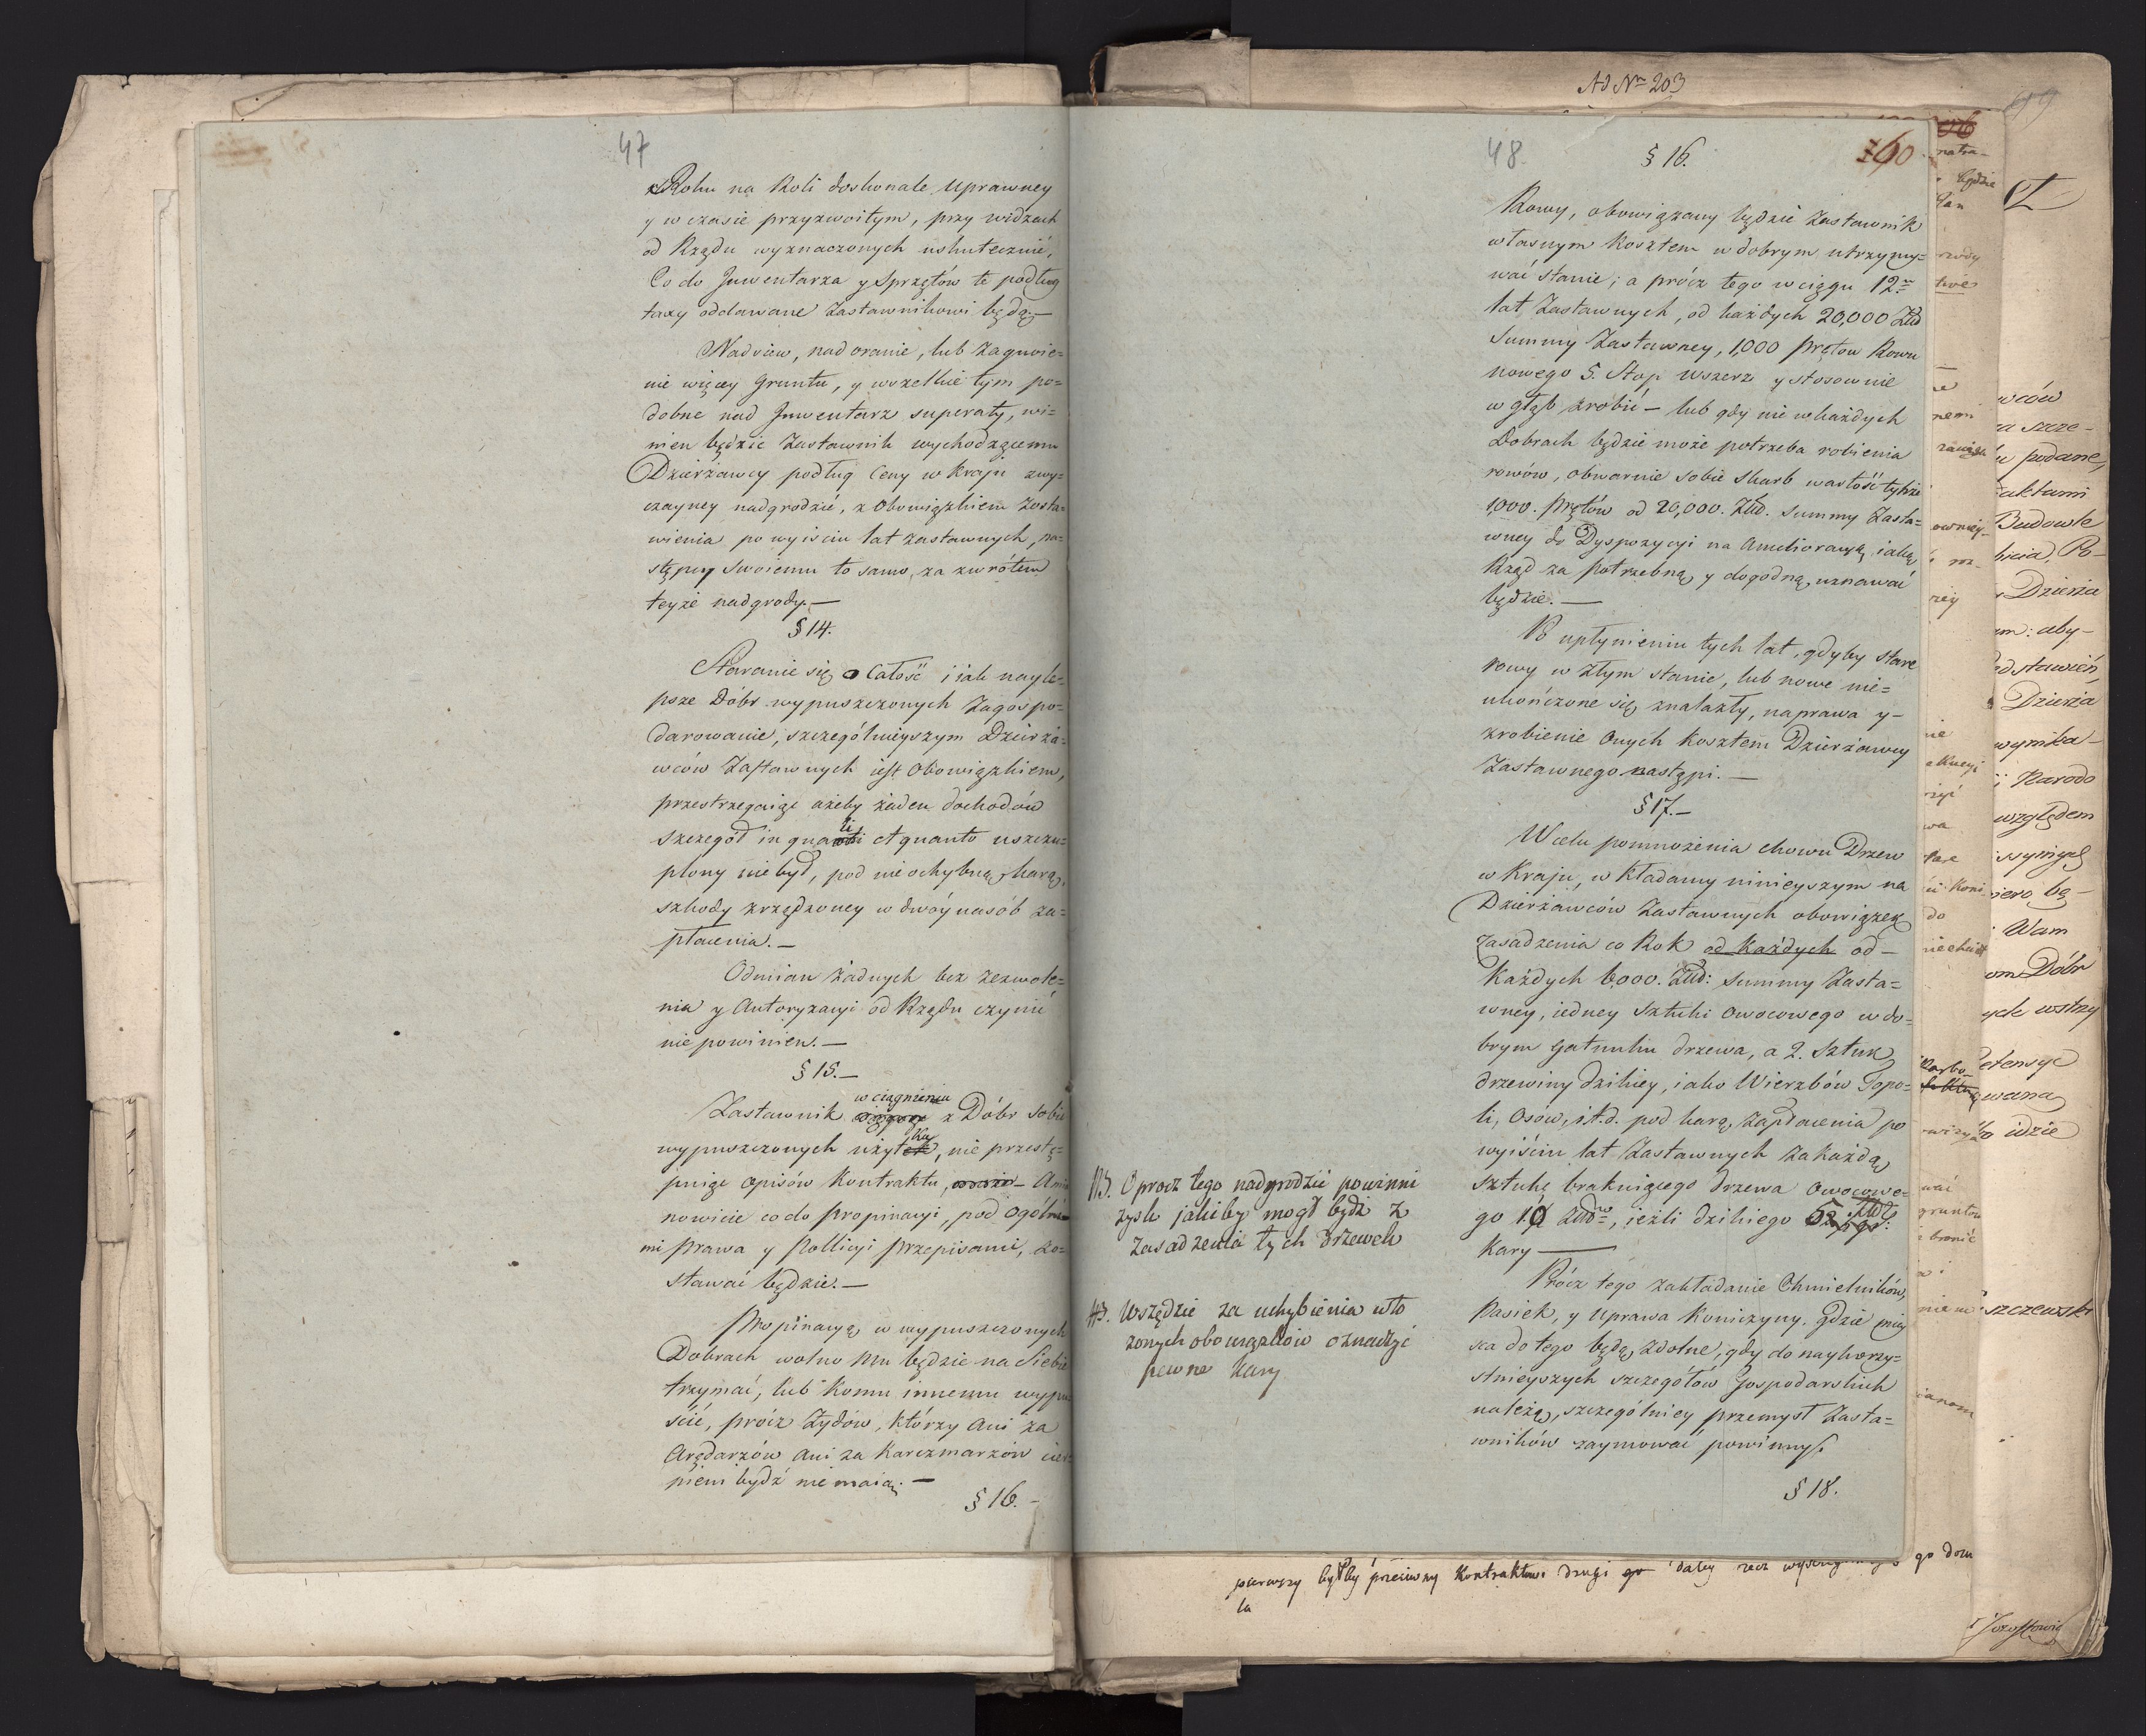 47
Roku na Roli doskonale uprawney
y w czasie przyzwoitym, przy widzach
od Rządu wyznaczonych uskutecznić,
Co do Jnwentarza y Sprzętów te podług
taxy oddawane Zastawnikowi będą.—
Nadsiew, nad oranie, lub zagnoie=
nie więcey gruntu, y wszelkie tym po=
dobne nad Jnwentarz superaty, wi=
nien będzie Zastawnik wychodzącemu
Dzierżawcy podług Ceny w kraju zwy=
czayney nadgrodzić, z Obowiązkiem zosta=
wienia po wyiściu lat zastawnych, na=
stępcy swoiemu to samo, za zwrótem
teyże nadgrody.—
§ 14.
Staranie się o Całość i jak nayle=
psze Dóbr wypuszczonych zagospo=
darowanie, szczególnieyszym Dzierża=
wców Zastawnych iest Obowiązkiem,
przestrzegaiąc ażeby żaden dochodów
szczegół in quali et quanto uszczu=
plony nie był, pod nieochybną karą,
szkody zrządzoney w dwóynasób za=
płacenia.—
Odmian żadnych bez zezwole=
nia y Autoryzacyi od Rządu czynić
nie powinien.—
§ 15.—
w ciągnieniu
Zastawnik z Dóbr sobie
wypuszczonych użytku, nie przestę=
puiąc opisów Kontraktu, — A mia
nowicie co do propinacyi, pod ogólne
mi prawa y Pollicyi przepisami, zo=
stawać będzie.—
Propinacyą w wypuszczonych
Dobrach wolno Mu będzie na Siebie
trzymać, lub komu innemu wypu
ścić, prócz Żydów, którzy ani za
Arędarzów ani za Karczmarzów cier
pieni bydź nie maią.—
§ 16.—
Ad Nrm 203
48
§ 16.
160
Rowy, obowiązany będzie Zastawnik
własnym kosztem w dobrym utrzymy=
wać stanie; a prócz tego w ciągu 12
lat Zastawnych, od każdych 20,000 Złtd
Summy Zastawney, 1,000 prętow Rowu
nowego 5. Stop wszerz y stosownie
w głąb zrobić— lub gdy nie w każdych
Dobrach będzie może potrzeba robienia
rowów, obwaruie sobie Skarb wartość tychże
1,000. Prętów od 20,000. Złtd. Summy Zasta=
wney do Dyspozycyi na Ameliorawyą iaką
Rząd za potrzebną y dogodną uznawać
będzie.—
Po upłynieniu tych lat, gdyby stare
rowy w złym stanie, lub nowe nie=
ukończone się znalazły, naprawa y—
zrobienie Onych kosztem Dzierżawcy
Zastawnego nastąpi.—
§ 17.—
W celu pomnożenia chowu Drzew
w Kraju, w kładamy ninieyszym na
Dzierżawców Zastawnych obowiązek
zasadzenia co Rok od każdych od—
każdych 6,000. Złtd: summy Zasta=
wney, iedney Sztuki owocowego w do=
brym gatunku drzewa, a 2. Sztuk
drzewiny dzikiey, iako Wierzbów Topo=
li, Osów, i t. d. pod karą zapłacenia po
wyiściu lat Zastawnych za każdą
sztukę brakuiącego drzewa owocowe=
go 10 , ieżli dzikiego 5
Kary —
Prócz tego zakładanie Chmielników
Pasiek, y uprawa Koniczyny, gdzie miey
sca do tego będą zdolne, gdy do naykorzy=
stnieyszych szczegółów Gospodarskich
należą, szczególniey przemysł Zasta=
wników zaymować powinny.
§ 18.
NB. Oprocz tego nadgrodzić powinni
zysk jakiby mogł bydź z
zasadzenia tych drzewek
NB. Wszędzie za uchybienia wło
zonych obowiązków oznaczyć
pewne kary
pierwszy byłby przeciwny Kontraktowi drugi daley rzecz go dozu
la
wców
a szcze-
podane,
aktami
Budowle
Dzierża
um: aby-
Dzierża
wynika-
Narodo
względem
Wam
om Dóbr
wstrzy
idzie